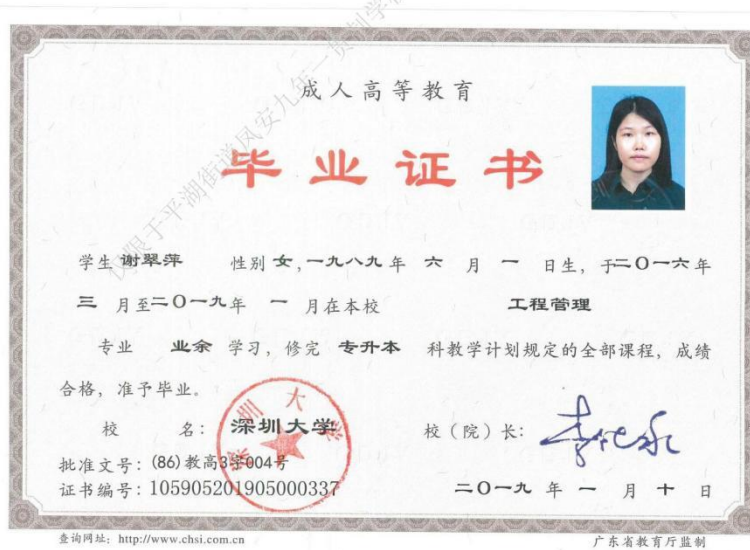 成人高等教育
毕业证书
学生 谢翠萍 性别 女,一九八九年 六 月 一 日生,于二〇一六年
三 月至二〇一九年 一 月在本校 工程管理
专业 业余 学习,修完 专升本 科教学计划规定的全部课程,成绩
合格,准予毕业。
校 名: 深圳大学 校(院)长:
批准文号:(86)教高3字004号
证书编号:105905201905000337 二〇一九 年 一 月 十 日
查询网址:http://www.chsi.com.cn 广东省教育厅监制
深圳大学